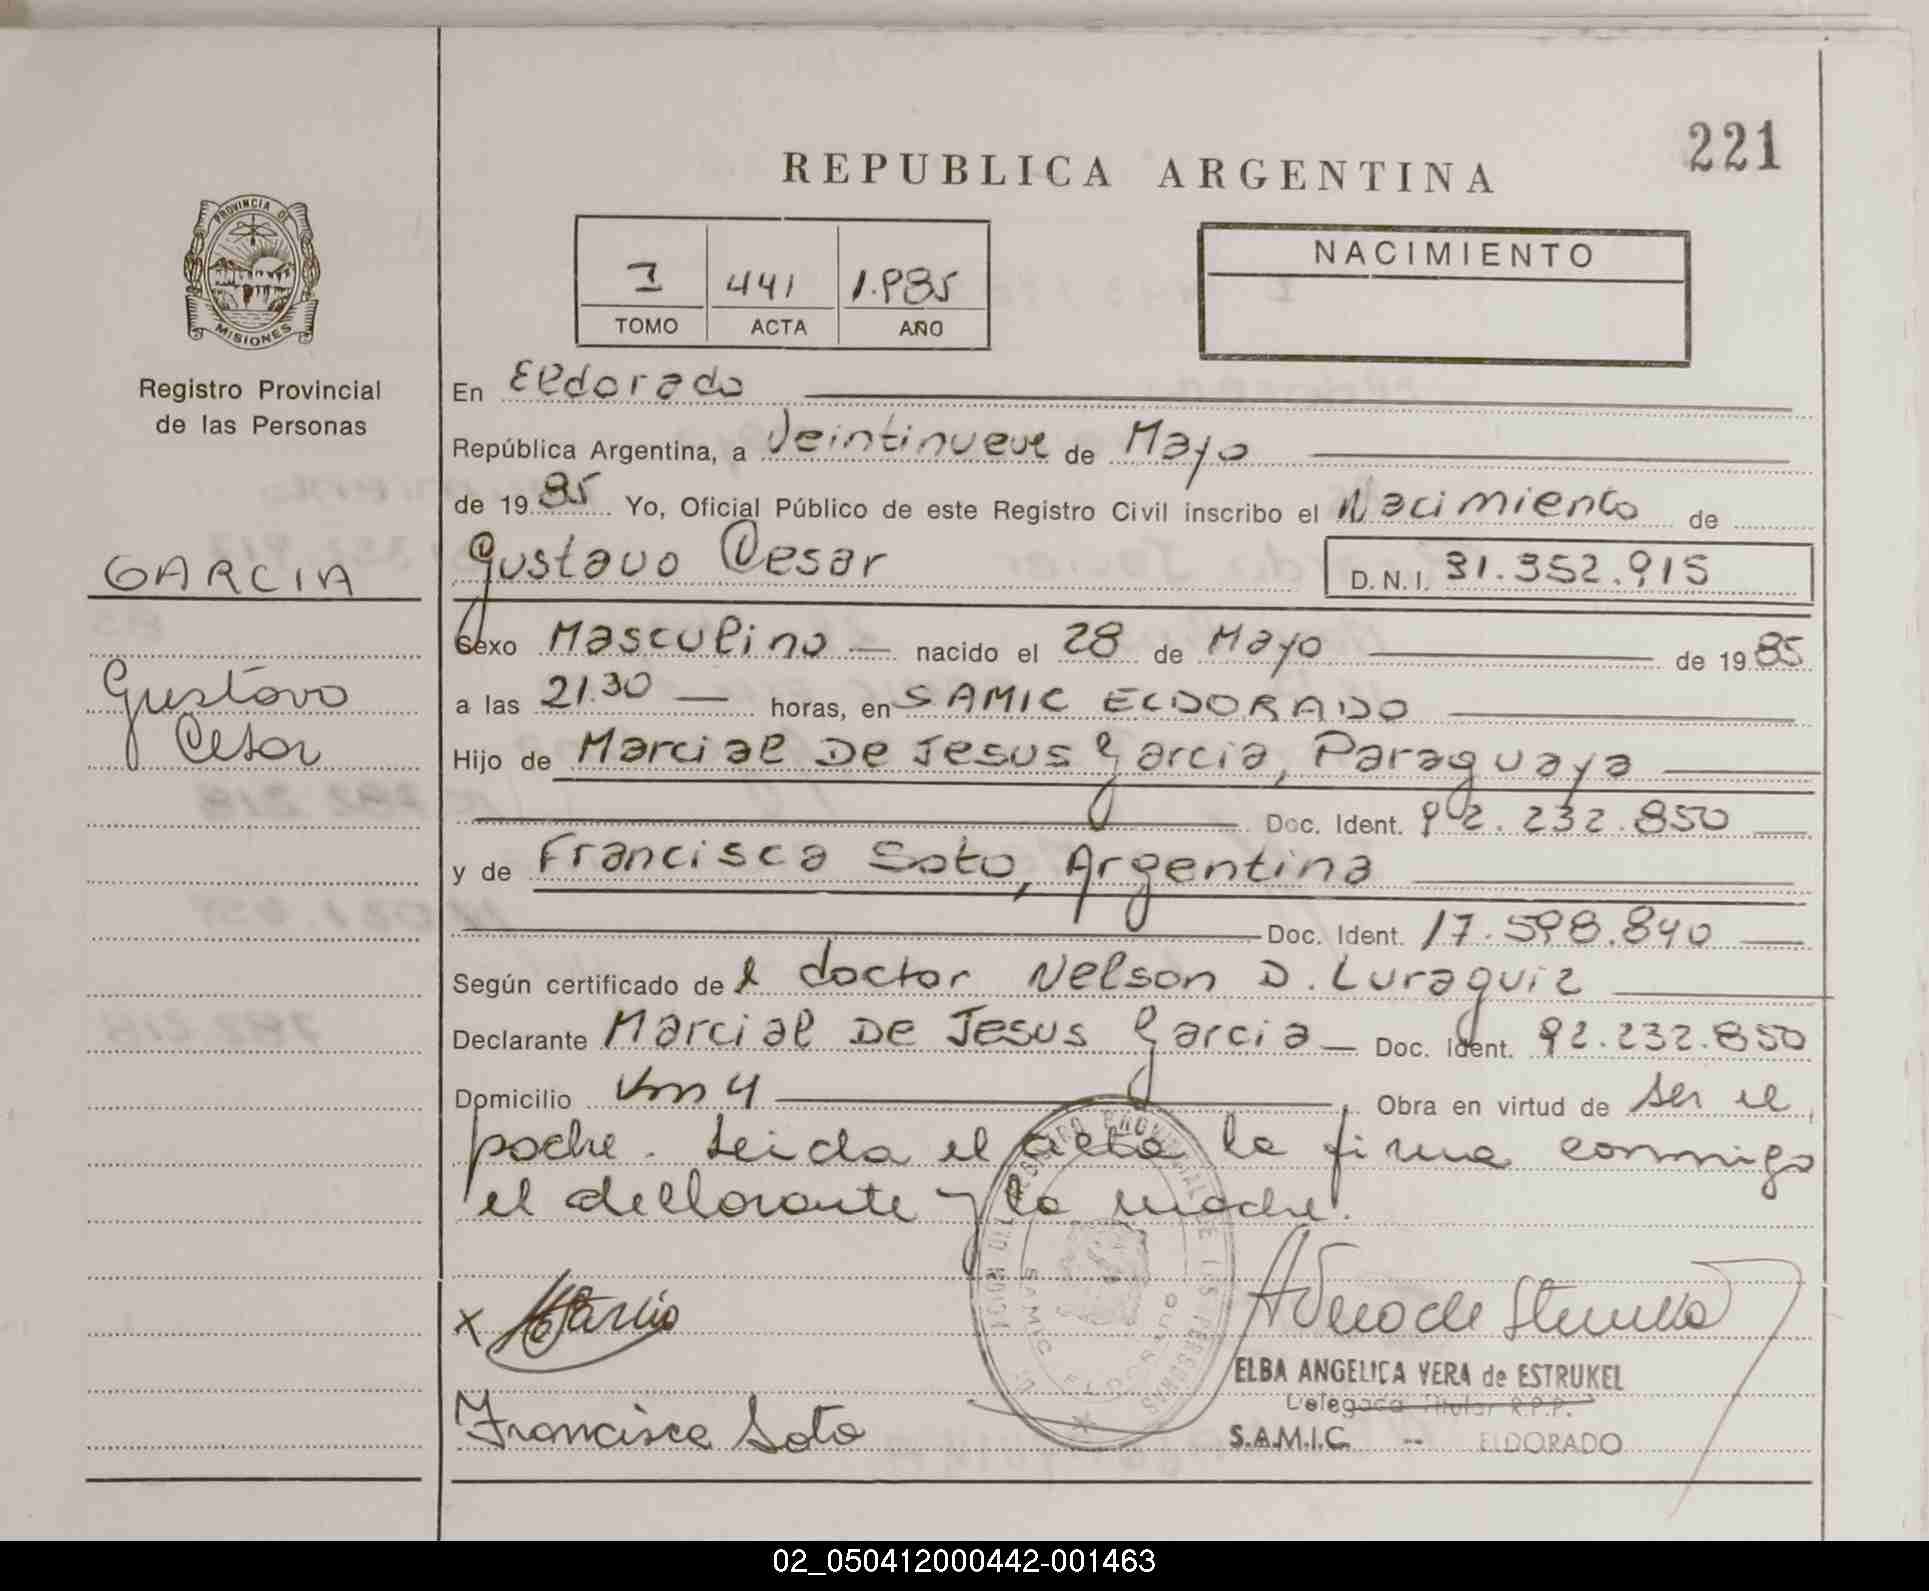 221
REPUBLICA ARGENTINA
PROVINCIA DE
MISIONES
Registro Provincial
de las Personas
I 441 1.985
TOMO ACTA AÑO
NACIMIENTO
En Eldorado
República Argentina, a Veintinueve de Mayo
de 1985 Yo, Oficial Público de este Registro Civil inscribo el Nacimiento de
GARCIA
Gustavo Cesar D.N.I. 31.352.915
Gustavo
Cesar
Sexo Masculino nacido el 28 de Mayo de 1985
a las 21.30 horas, en SAMIC ELDORADO
Hijo de Marcial De Jesus Garcia, Paraguaya
Doc. Ident. 92.232.850
y de Francisca Soto, Argentina
Doc. Ident. 17.598.840
Según certificado de l doctor Nelson D. Luraguiz
Declarante Marcial De Jesus Garcia Doc. Ident. 92.232.850
Domicilio Km 4 Obra en virtud de ser el
padre. Leida el acta la firma conmigo
el declarante y la madre.
x Garcia
Francisca Soto
ELBA ANGELICA VERA de ESTRUKEL
Delegada Titular R.P.P.
S.A.M.I.C. -- ELDORADO
SAMIC ELDORADO
02_050412000442-001463